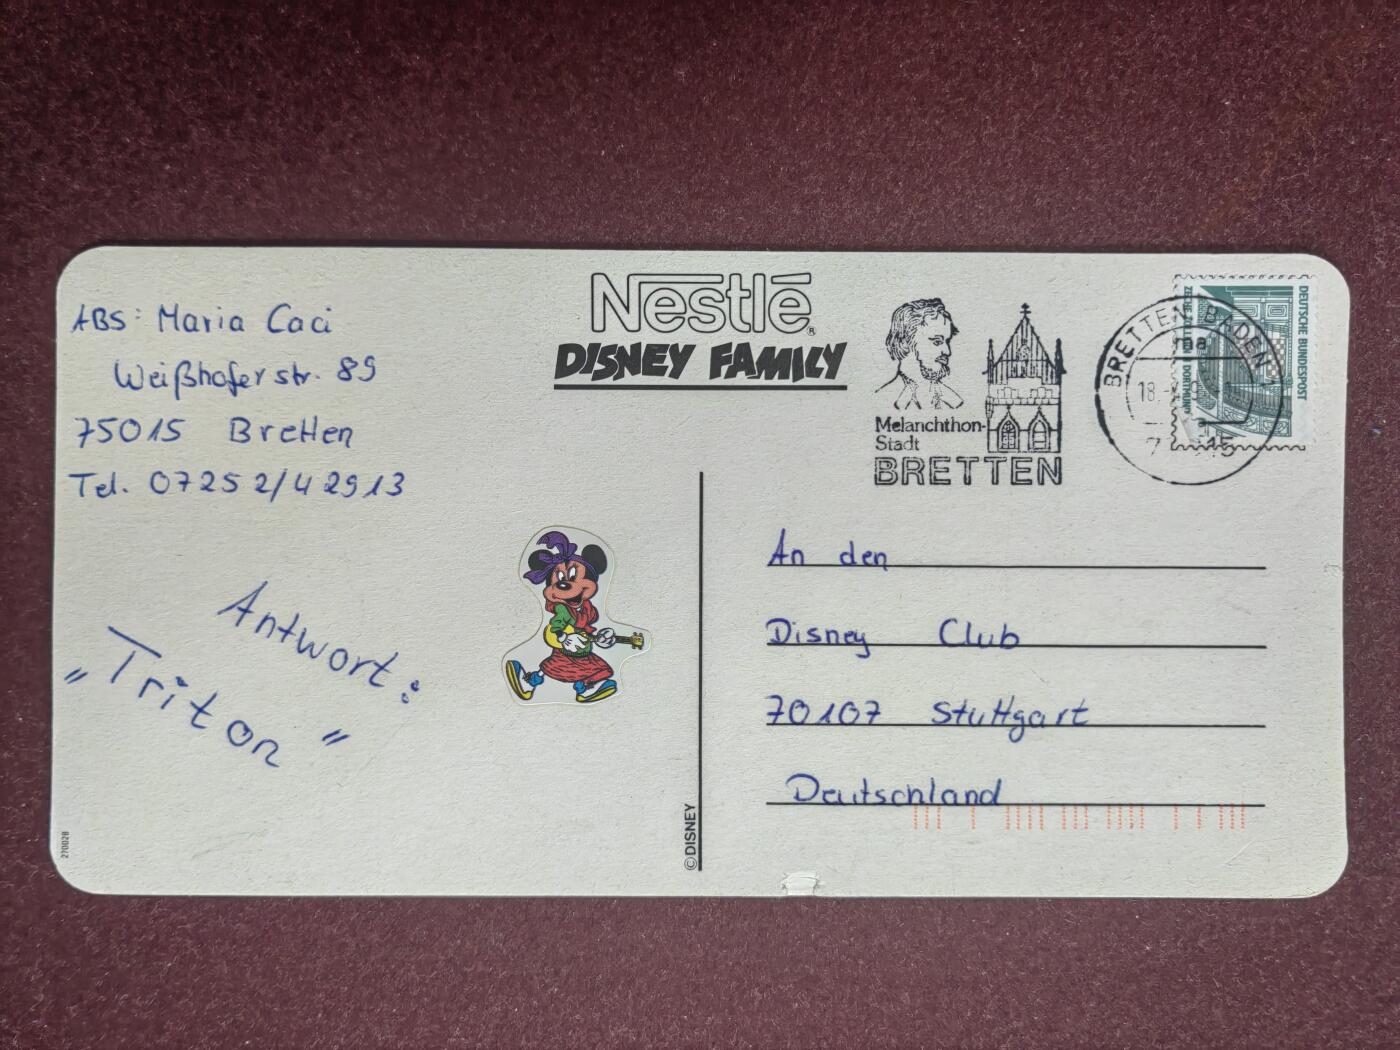 ABS: Maria Caci
Weißhofer str. 89
75015 Bretten
Tel. 07252/42913
Antwort:
„Triton"
270028
Nestlé
DISNEY FAMILY
©DISNEY
Melanchthon-
Stadt
BRETTEN
BRETTEN, BADEN
ma
18.
DEUTSCHE BUNDESPOST
ZECHE ZOLLERN II DORTMUND
An den
Disney Club
70107 Stuttgart
Deutschland